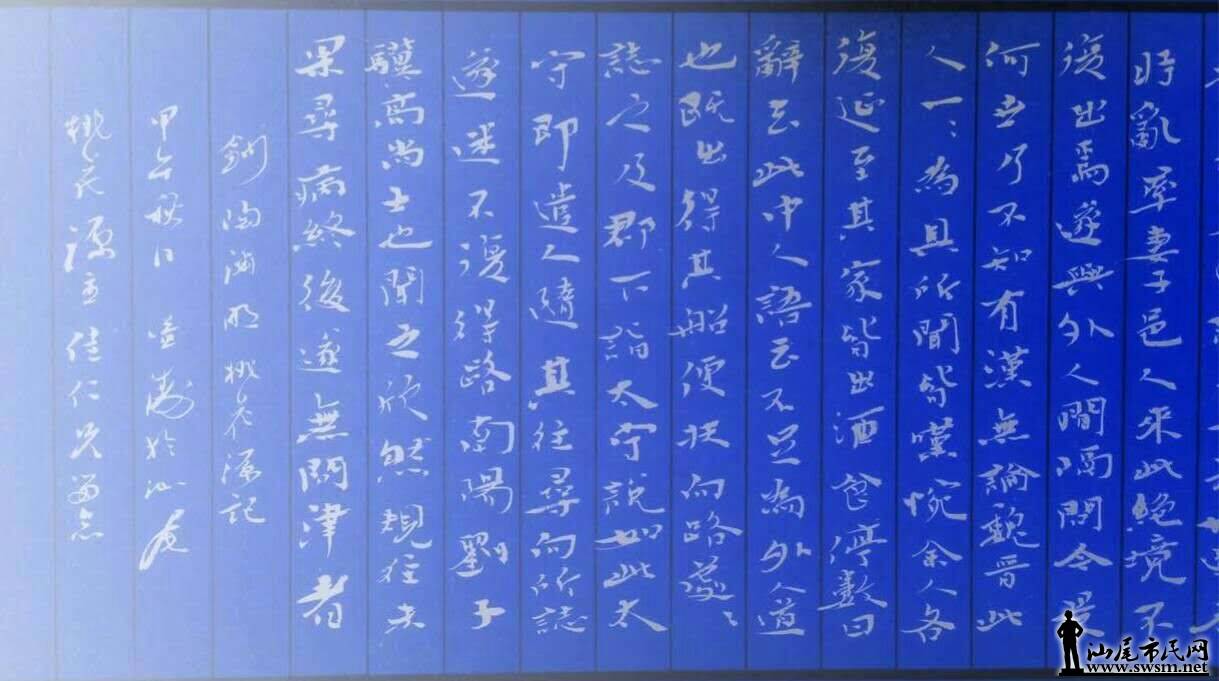 時亂率妻子邑人來此絶境不
復出焉遂與外人間隔問今是
何世乃不知有漢無論魏晉此
人一一為具所聞皆嘆惋余人各
復延至其家皆出酒食停數日
辭去此中人語云不足為外人道
也既出得其船便扶向路處處
誌之及郡下詣太守說如此太
守即遣人隨其往尋向所誌
遂迷不復得路南陽劉子
驥高尚士也聞之欣然規往未
果尋病終後遂無問津者
錄陶淵明桃花源記
甲午秋日 書於汕尾
桃花源主佳仁兄留念
汕尾市民网
www.swsm.net